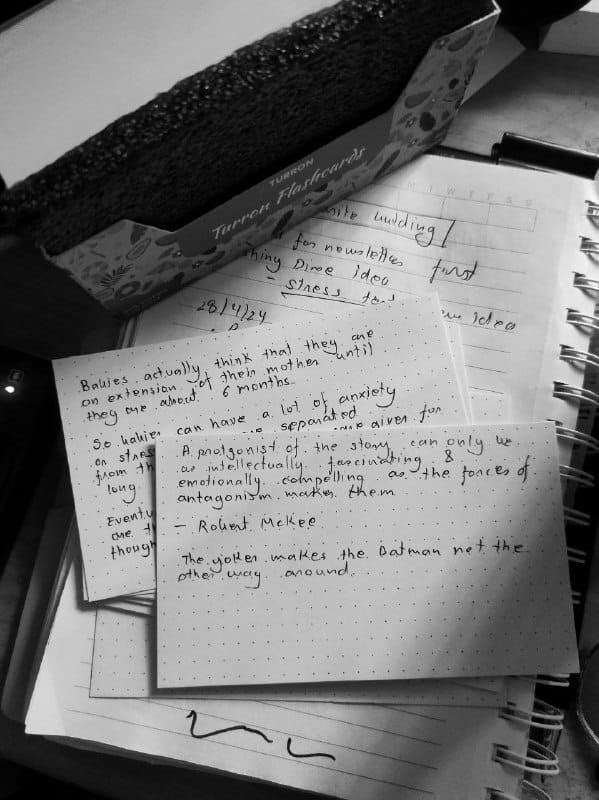 TURRON
Turron Flashcards
M T W T F S S
building
for newsletter first
Dime idea
- stress
idea
28/4/24
Babies actually think that they are
an extension of their mother until
they are about 6 months.
So babies can have a lot of anxiety
or stress
separated
from
long
Eventu
are
though
A protgonist of the story can only be
as intellectually fascinating &
emotionally compelling as the forces of
antagonism makes them
- Robert McKee
The joker makes the Batman not the
other way around.